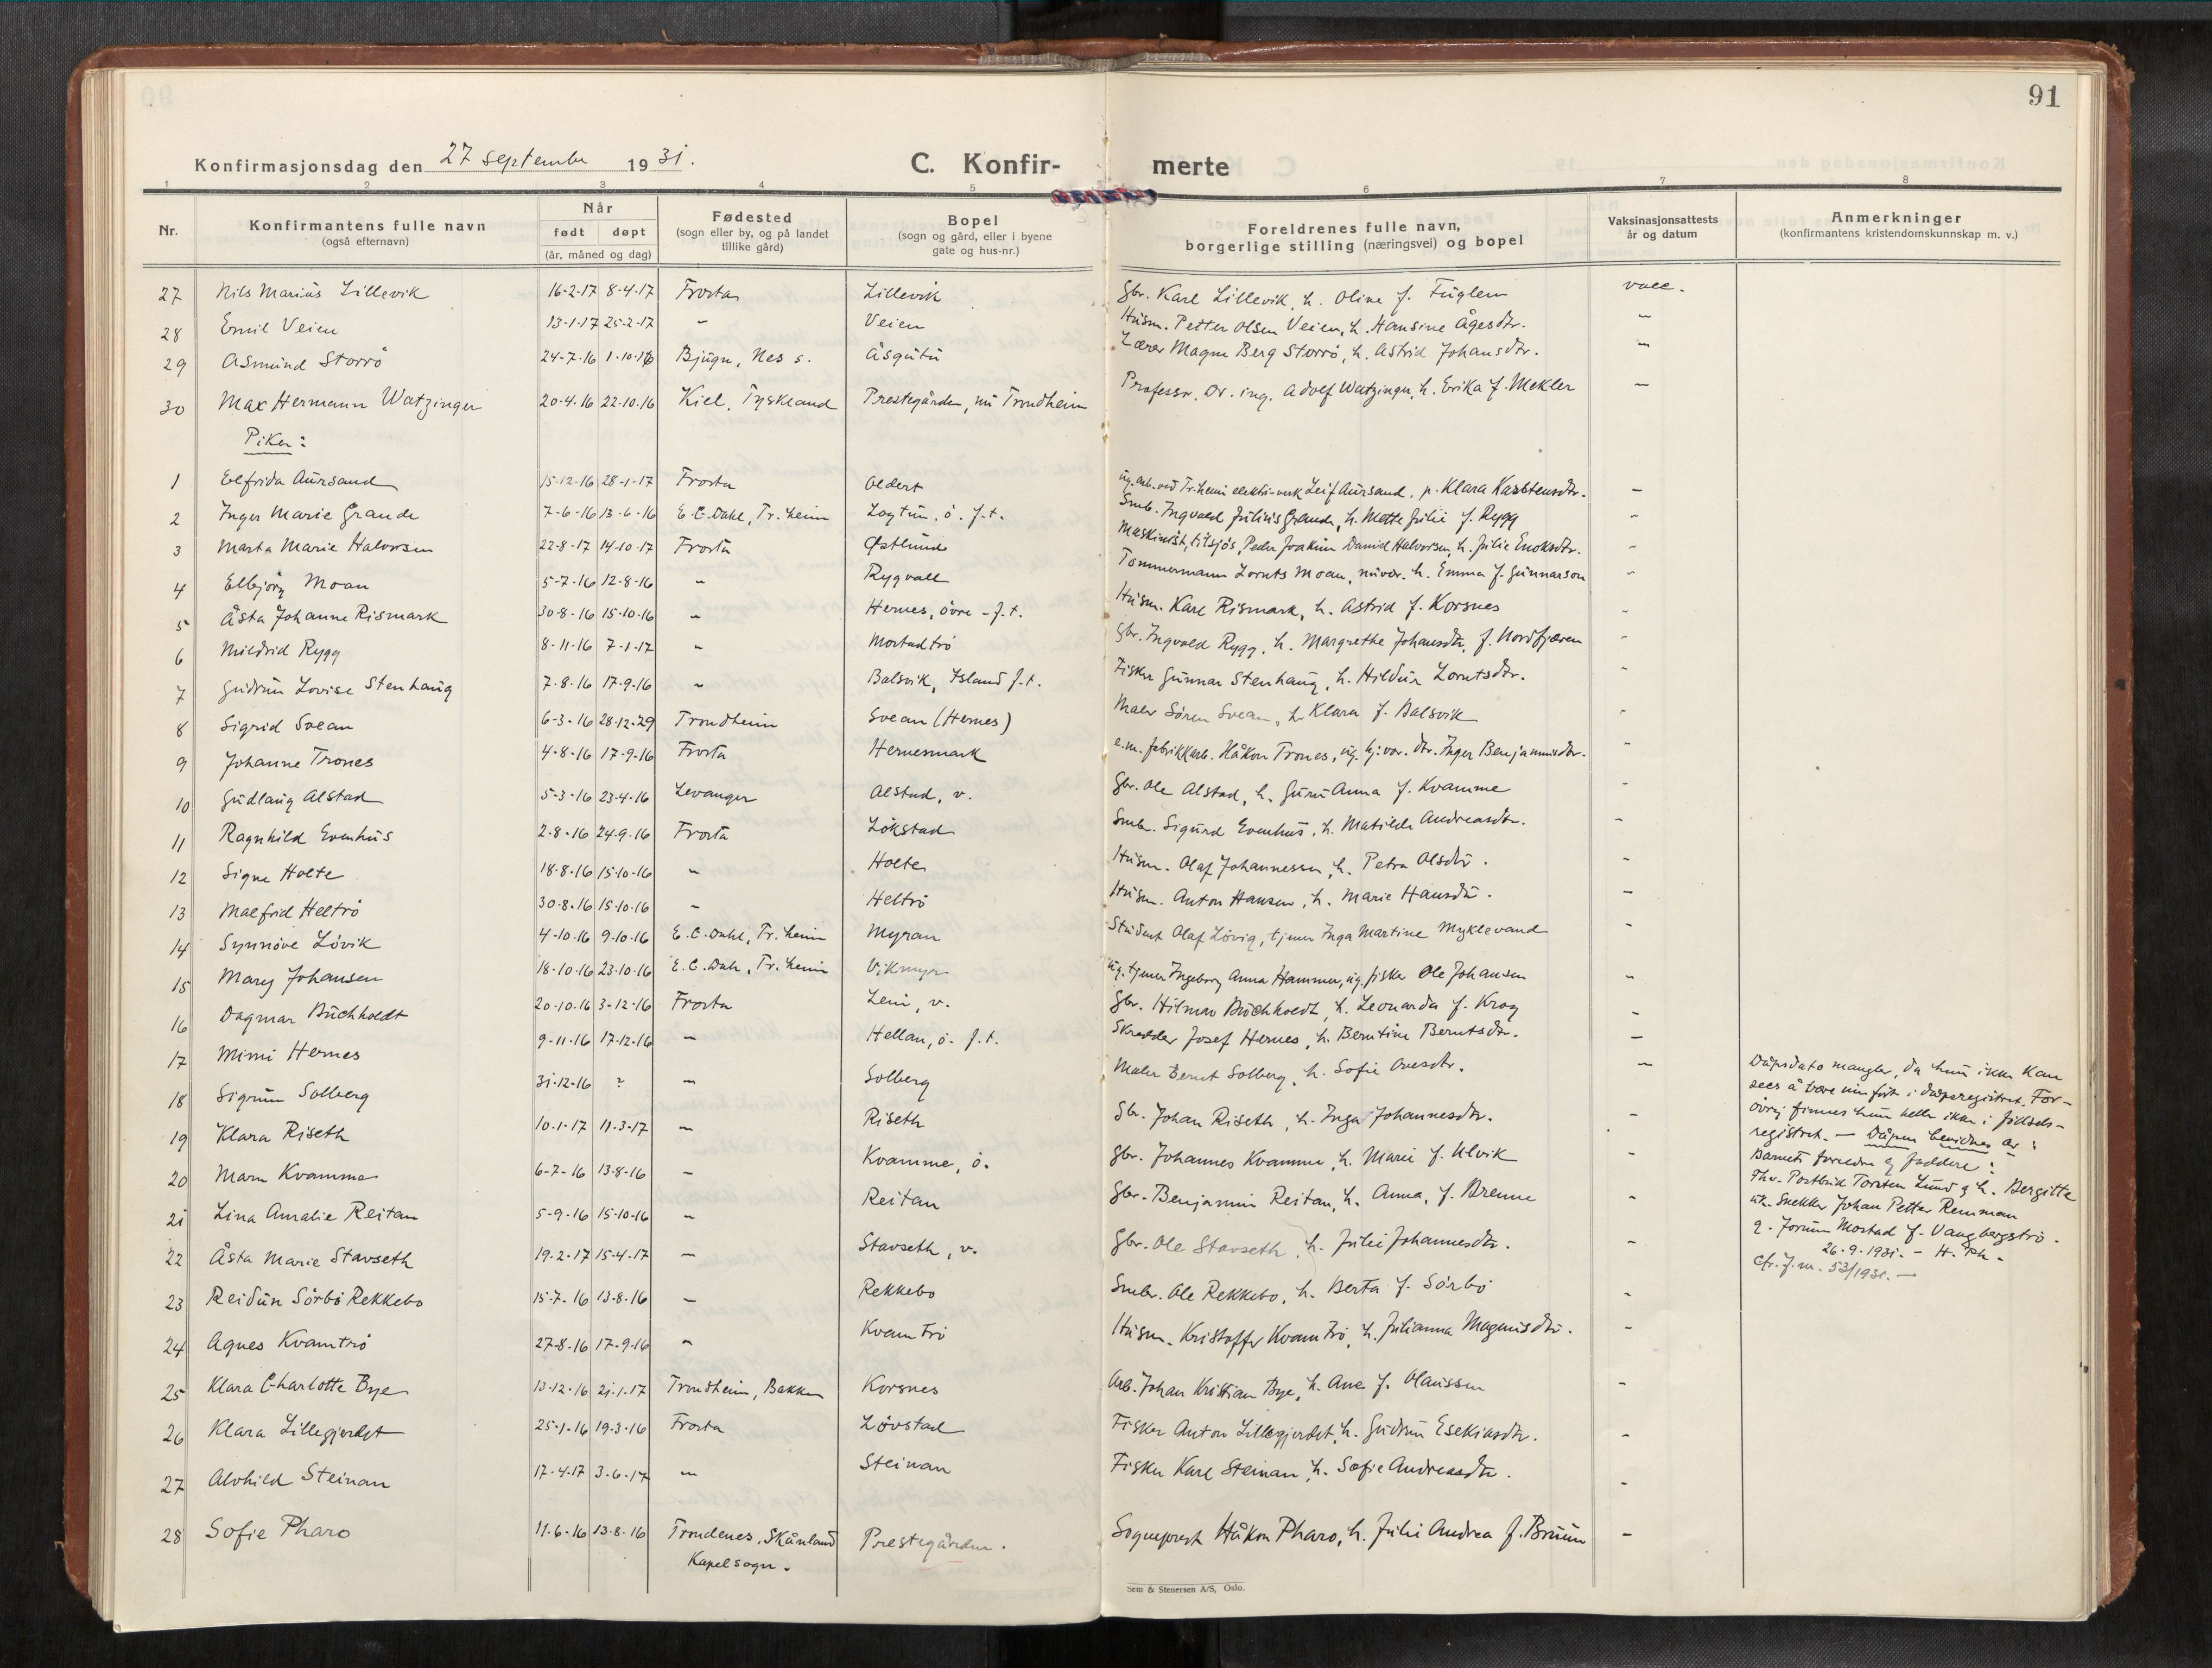 91
Konfirmasjonsdag den 27 september 1931. C. Konfirmerte
1 2 3 4 5 6 7 8
Nr. Konfirmantens fulle navn (også efternavn) Når født døpt (år, måned og dag) Fødested (sogn eller by, og på landet tillike gård) Bopel (sogn og gård, eller i byene gate og hus-nr.) Foreldrenes fulle navn, borgerlige stilling (næringsvei) og bopel Vaksinasjonsattests år og datum Anmerkninger (konfirmantens kristendomskunnskap m. v.)
27 Nils Marius Lillevik 16-2-17 8-4-17 Frosta Lillevik Gbr. Karl Lillevik, h. Oline f. Fuglem vacc.
28 Emil Veien 13-1-17 25-2-17 " Veien Husm. Petter Olsen Veien, h. Hansine Ågesdtr. "
29 Asmund Storrø 24-7-16 1-10-16 Bjugn, Nes s. Åsgutu Lærer Magne Berg Storrø, h. Astrid Johansdtr. "
30 Max Hermann Watzinger 20-4-16 22-10-16 Kiel, Tyskland Prestegården, nu Trondheim Professor, Dr. ing. Adolf Watzinger, h. Erika f. Mekler —
Piker:
1 Elfrida Aursand 15-12-16 28-1-17 Frosta Aldert ug. arb. ved Tr.heim elektr.-verk Leif Aursand, p. Klara Karstensdtr. —
2 Inger Marie Grande 7-6-16 13-6-16 E. C. Dahl, Tr.heim Logtun, ö. f.t. Smb. Ingvald Julius Grande, h. Mette Julie f. Rygg "
3 Marta Marie Halvorsen 22-8-17 14-10-17 Frosta Østlund Maskinist, tilsjøs, Peder Joakim Daniel Halvorsen, h. Julie Enoksdtr. "
4 Elbjørg Moan 5-7-16 12-8-16 " Rygvall Tømmermann Lornts Moan, nuvær. h. Emma f. Gunnarson "
5 Åsta Johanne Rismark 30-8-16 15-10-16 " Hernes, övre - f.t. Husm. Karl Rismark, h. Astrid f. Korsnes "
6 Mildrid Rygg 8-11-16 7-1-17 " Mostadtrö Gbr. Ingvald Rygg, h. Margrethe Johansdtr. f. Nordfjæren "
7 Gudrun Lovise Stenhaug 7-8-16 17-9-16 " Balsvik, Island f.t. Fisker Gunnar Stenhaug, h. Hildur Lorntsdtr. "
8 Sigrid Svean 6-3-16 28-12-29 Trondheim Svean (Hernes) Maler Sören Svean, h. Klara f. Balsvik "
9 Johanne Trones 4-8-16 17-9-16 Frosta Hernesmark e.m. fabrikkarb. Håkon Trones, ug. hj.vær. dtr. Inger Benjaminsdtr. "
10 Gudlaug Alstad 5-3-16 23-4-16 Levanger Alstad, v. Gbr. Ole Alstad, h. Guru Anna f. Kvamme "
11 Ragnhild Evenhus 2-8-16 24-9-16 Frosta Lökstad Smbr. Sigurd Evenhus, h. Matilde Andreasdtr. "
12 Signe Holte 18-8-16 15-10-16 " Holte Husm. Olaf Johannessen, h. Petra Olsdtr. "
13 Malfrid Heltrö 30-8-16 15-10-16 " Heltrö Husm. Anton Hansen, h. Marie Hansdtr. —
14 Synnöve Lövik 4-10-16 9-10-16 E. C. Dahl, Tr.heim Myran Student Olaf Lövig, tjener Inga Martine Myklevand "
15 Mary Johansen 18-10-16 23-10-16 E. C. Dahl, Tr.heim Vikmyr ug. tjener Ingeborg Anna Hammer, ug. fisker Ole Johansen "
16 Dagmar Buchholdt 20-10-16 3-12-16 Frosta Lein, v. Gbr. Hilmar Buchholdt, h. Leonarda f. Krog "
17 Mimi Hernes 9-11-16 17-12-16 — Hellan, ö. f.t. Skredder Josef Hernes, h. Berntine Berntsdtr. —
18 Sigrun Solberg 31-12-16 ? — Solberg Maler Bernt Solberg, h. Sofie Ovesdtr. —
Dåpsdato mangler, da hun ikke kan
sees å være innført i dåpsregistret. For-
øvrig finnes hun heller ikke i fødsels-
registret. — Dåpen bevidnes av:
Barnets foreldre og faddere:
Fhv. Postbud Torsten Lund og h. Bergitte
Snekker Johan Petter Remman
og Jorun Mostad f. Vangbergströ.
26-9-1931. - H. Ph.
Cfr. J. nr. 53/1931. —
19 Klara Riseth 10-1-17 11-3-17 — Riseth Gbr. Johan Riseth, h. Inga Johannesdtr. "
20 Maren Kvamme 6-7-16 13-8-16 — Kvamme, ö. Gbr. Johannes Kvamme, h. Marie f. Ulvik "
21 Lina Amalie Reitan 5-9-16 15-10-16 " Reitan Gbr. Benjamin Reitan, h. Anna, f. Brenne "
22 Åsta Marie Stavseth 19-2-17 15-4-17 — Stavseth, v. Gbr. Ole Stavseth, h. Julie Johannesdtr. "
23 Reidun Sörbö Rekkebo 15-7-16 13-8-16 — Rekkebo Smbr. Ole Rekkebo, h. Berta f. Sörbö "
24 Agnes Kvamtrö 27-8-16 17-9-16 " Kvamtrö Husm. Kristoffer Kvamtrö, h. Julianna Magnusdtr. "
25 Klara Charlotte Bye 13-12-16 21-1-17 Trondheim, Bakke Korsnes Arb. Johan Kristian Bye, h. Ane f. Olaussen "
26 Klara Lillegjerdet 25-1-16 19-3-16 Frosta Lövstad Fisker Anton Lillegjerdet, h. Gudrun Esekiasdtr. "
27 Alvhild Steinan 17-4-17 3-6-17 " Steinan Fisker Karl Steinan, h. Sofie Andreasdtr. "
28 Sofie Pharo 11-6-16 13-8-16 Trondenes, Skånland Kapelsogn. Prestegården. Sogneprest Håkon Pharo, h. Julie Andrea f. Bruun —
Sem & Stenersen A/S, Oslo.